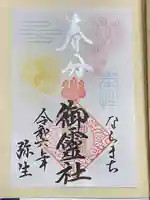 春分
奉拝
ならまち
御霊社
令和六年
弥生